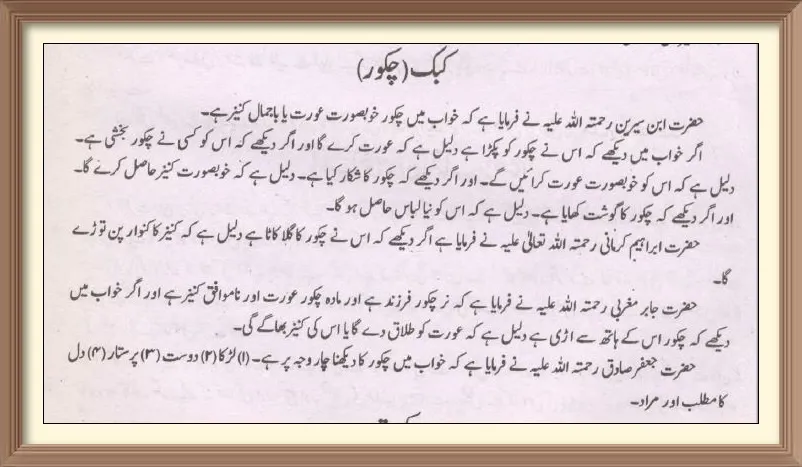 کبک (چکور)
حضرت ابن سیرین رحمتہ اللہ علیہ نے فرمایا ہے کہ خواب میں چکور خوبصورت عورت یا باجمال کنیز ہے۔
اگر خواب میں دیکھے کہ اس نے چکور کو پکڑا ہے دلیل ہے کہ عورت کرے گا اور اگر دیکھے کہ اس کو کسی نے چکور بخشی ہے۔
دلیل ہے کہ اس کو خوبصورت عورت کرائیں گے۔ اور اگر دیکھے کہ چکور کا شکار کیا ہے۔ دلیل ہے کہ خوبصورت کنیز حاصل کرے گا۔
اور اگر دیکھے کہ چکور کا گوشت کھایا ہے۔ دلیل ہے کہ اس کو نیا لباس حاصل ہو گا۔
حضرت ابراہیم کرمانی رحمتہ اللہ تعالیٰ علیہ نے فرمایا ہے اگر دیکھے کہ اس نے چکور کا گلا کاٹا ہے دلیل ہے کہ کنیز کا کنوار پن توڑے
گا۔
حضرت جابر مغربی رحمتہ اللہ علیہ نے فرمایا ہے کہ نر چکور فرزند ہے اور مادہ چکور عورت اور ناموافق کنیز ہے اور اگر خواب میں
دیکھے کہ چکور اس کے ہاتھ سے اڑی ہے دلیل ہے کہ عورت کو طلاق دے گا یا اس کی کنیز بھاگے گی۔
حضرت جعفر صادق رحمتہ اللہ علیہ نے فرمایا ہے کہ خواب میں چکور کا دیکھنا چار وجہ پر ہے۔ (۱) لڑکا (۲) دوست (۳) پرستار (۴) دل
کا مطلب اور مراد۔